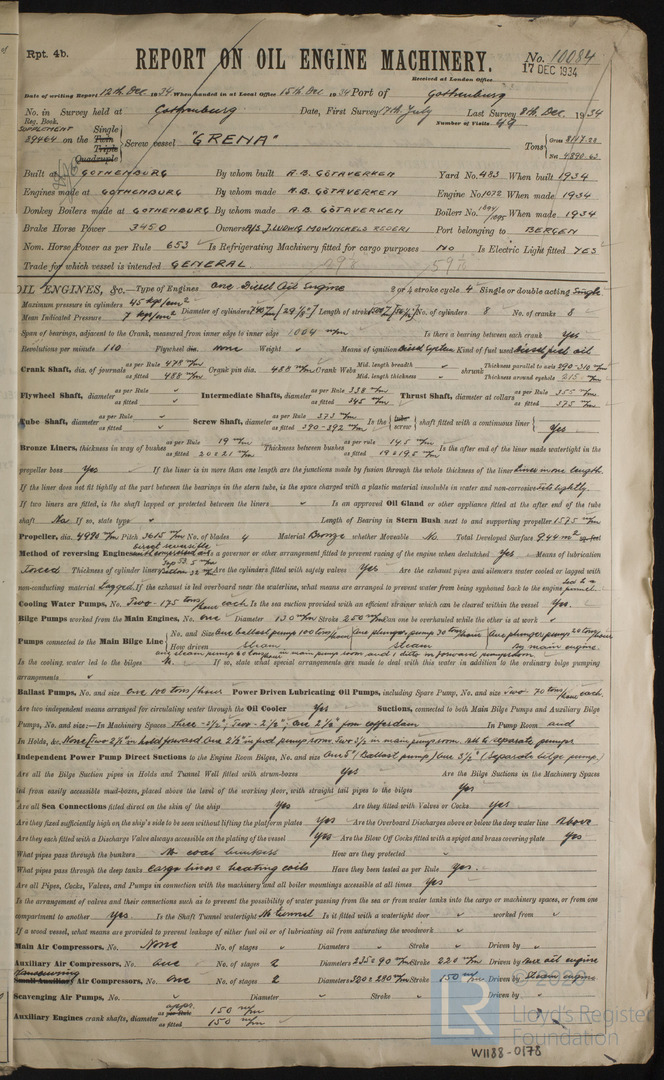 Rpt. 4b.
REPORT ON OIL ENGINE MACHINERY.
No. 10084
Received at London Office 17 DEC 1934
Date of writing Report 12th Dec 1934 When handed in at Local Office 15th Dec 1934 Port of Gothenburg
No. in Reg. Book. Survey held at Gothenburg Date, First Survey 17th July Last Survey 8th Dec. 1934
Number of Visits 49
SUPPLEMENT 39464 on the Single Twin Triple Quadruple Screw vessel "GRENA" Tons Gross Net 4890.63
Built at GOTHENBURG By whom built A.B. GÖTAVERKEN Yard No. 483 When built 1934
Engines made at GOTHENBURG By whom made A.B. GÖTAVERKEN Engine No. 1072 When made 1934
Donkey Boilers made at GOTHENBURG By whom made A.B. GÖTAVERKEN Boiler No. When made 1934
Brake Horse Power 3450 Owners A/S J. LUDWIG MOWINCKELS REDERI Port belonging to BERGEN
Nom. Horse Power as per Rule 653 Is Refrigerating Machinery fitted for cargo purposes NO Is Electric Light fitted YES
Trade for which vessel is intended GENERAL
OIL ENGINES, &c. Type of Engines One Diesel Oil Engine 2 or 4 stroke cycle 4 Single or double acting Single
Maximum pressure in cylinders 45 kgs/cm² Diameter of cylinders Length of stroke No. of cylinders 8 No. of cranks 8
Mean Indicated Pressure 7 kgs/cm²
Span of bearings, adjacent to the Crank, measured from inner edge to inner edge 1004 m/m Is there a bearing between each crank Yes
Revolutions per minute 110 Flywheel dia. none Weight " Means of ignition Diesel system Kind of fuel used Diesel fuel oil
Crank Shaft, dia. of journals as per Rule 479 m/m as fitted 488 m/m Crank pin dia. 488 m/m Crank Webs Mid. length breadth Mid. length thickness shrunk Thickness parallel to axis 290-310 m/m Thickness around eyehole 215 m/m
Flywheel Shaft, diameter as per Rule " as fitted " Intermediate Shafts, diameter as per Rule 338 m/m as fitted 345 m/m Thrust Shaft, diameter at collars as per Rule 355 m/m as fitted 375 m/m
Tube Shaft, diameter as per Rule " as fitted " Screw Shaft, diameter as per Rule 373 m/m as fitted 390-392 m/m Is the tube screw shaft fitted with a continuous liner Yes
Bronze Liners, thickness in way of bushes as per Rule 19 m/m as fitted 20 & 21 m/m Thickness between bushes as per rule 14.5 m/m as fitted 19 & 19.5 m/m Is the after end of the liner made watertight in the
propeller boss Yes If the liner is in more than one length are the junctions made by fusion through the whole thickness of the liner liner in one length
If the liner does not fit tightly at the part between the bearings in the stern tube, is the space charged with a plastic material insoluble in water and non-corrosive fits tightly.
If two liners are fitted, is the shaft lapped or protected between the liners " Is an approved Oil Gland or other appliance fitted at the after end of the tube
shaft No If so, state type " Length of Bearing in Stern Bush next to and supporting propeller 1575 m/m
Propeller, dia. 4490 m/m Pitch 3615 m/m No. of blades 4 Material Bronze whether Moveable No Total Developed Surface 9.44 m² sq. feet
Method of reversing Engines direct reversible Is a governor or other arrangement fitted to prevent racing of the engine when declutched Yes Means of lubrication
forced Thickness of cylinder liners Top 53.5 m/m Bottom 32 m/m Are the cylinders fitted with safety valves Yes Are the exhaust pipes and silencers water cooled or lagged with
non-conducting material Lagged If the exhaust is led overboard near the waterline, what means are arranged to prevent water from being syphoned back to the engine Led to a funnel
Cooling Water Pumps, No. Two - 175 tons/hour each. Is the sea suction provided with an efficient strainer which can be cleared within the vessel Yes.
Bilge Pumps worked from the Main Engines, No. one Diameter 130 m/m Stroke 250 m/m Can one be overhauled while the other is at work "
Pumps connected to the Main Bilge Line No. and Size One ballast pump 100 tons/hour One plunger pump 30 tons/hour One plunger pump 20 tons/hour
How driven Steam Steam By main engine
one steam pump 60 tons/hour in main pump room and 1 ditto in forward pumproom.
Is the cooling water led to the bilges No. If so, state what special arrangements are made to deal with this water in addition to the ordinary bilge pumping
arrangements "
Ballast Pumps, No. and size One 100 tons/hour Power Driven Lubricating Oil Pumps, including Spare Pump, No. and size Two 70 tons/hour each.
Are two independent means arranged for circulating water through the Oil Cooler Yes Suctions, connected to both Main Bilge Pumps and Auxiliary Bilge
Pumps, No. and size:—In Machinery Spaces Three - 3½"; Two - 2½"; One 2½" from cofferdam In Pump Room and
In Holds, &c. None (Two 2½" in hold forward One 2½" in fwd pump room. Two 3½ in main pump room. All to separate pumps
Independent Power Pump Direct Suctions to the Engine Room Bilges, No. and size One 5" (Ballast pump) One 3½" (Separate bilge pump.)
Are all the Bilge Suction pipes in Holds and Tunnel Well fitted with strum-boxes Yes Are the Bilge Suctions in the Machinery Spaces
led from easily accessible mud-boxes, placed above the level of the working floor, with straight tail pipes to the bilges Yes
Are all Sea Connections fitted direct on the skin of the ship Yes Are they fitted with Valves or Cocks Yes
Are they fixed sufficiently high on the ship's side to be seen without lifting the platform plates Yes Are the Overboard Discharges above or below the deep water line Above
Are they each fitted with a Discharge Valve always accessible on the plating of the vessel Yes Are the Blow Off Cocks fitted with a spigot and brass covering plate Yes
What pipes pass through the bunkers No coal bunkers How are they protected "
What pipes pass through the deep tanks Cargo lines & heating coils Have they been tested as per Rule Yes.
Are all Pipes, Cocks, Valves, and Pumps in connection with the machinery and all boiler mountings accessible at all times Yes
Is the arrangement of valves and their connections such as to prevent the possibility of water passing from the sea or from water tanks into the cargo or machinery spaces, or from one
compartment to another Yes Is the Shaft Tunnel watertight No tunnel Is it fitted with a watertight door " worked from "
If a wood vessel, what means are provided to prevent leakage of either fuel oil or of lubricating oil from saturating the woodwork "
Main Air Compressors, No. None No. of stages " Diameters " Stroke " Driven by "
Auxiliary Air Compressors, No. one No. of stages 2 Diameters 235 & 90 m/m Stroke 220 m/m Driven by Aux oil engine
Manoeuvring Small Auxiliary Air Compressors, No. One No. of stages 2 Diameters Stroke 150 m/m Driven by Steam engine
Scavenging Air Pumps, No. " Diameter " Stroke " Driven by "
Auxiliary Engines crank shafts, diameter appr. as per Rule 150 m/m as fitted 150 m/m
© 2020
LR Lloyd's Register Foundation
W1188-0178